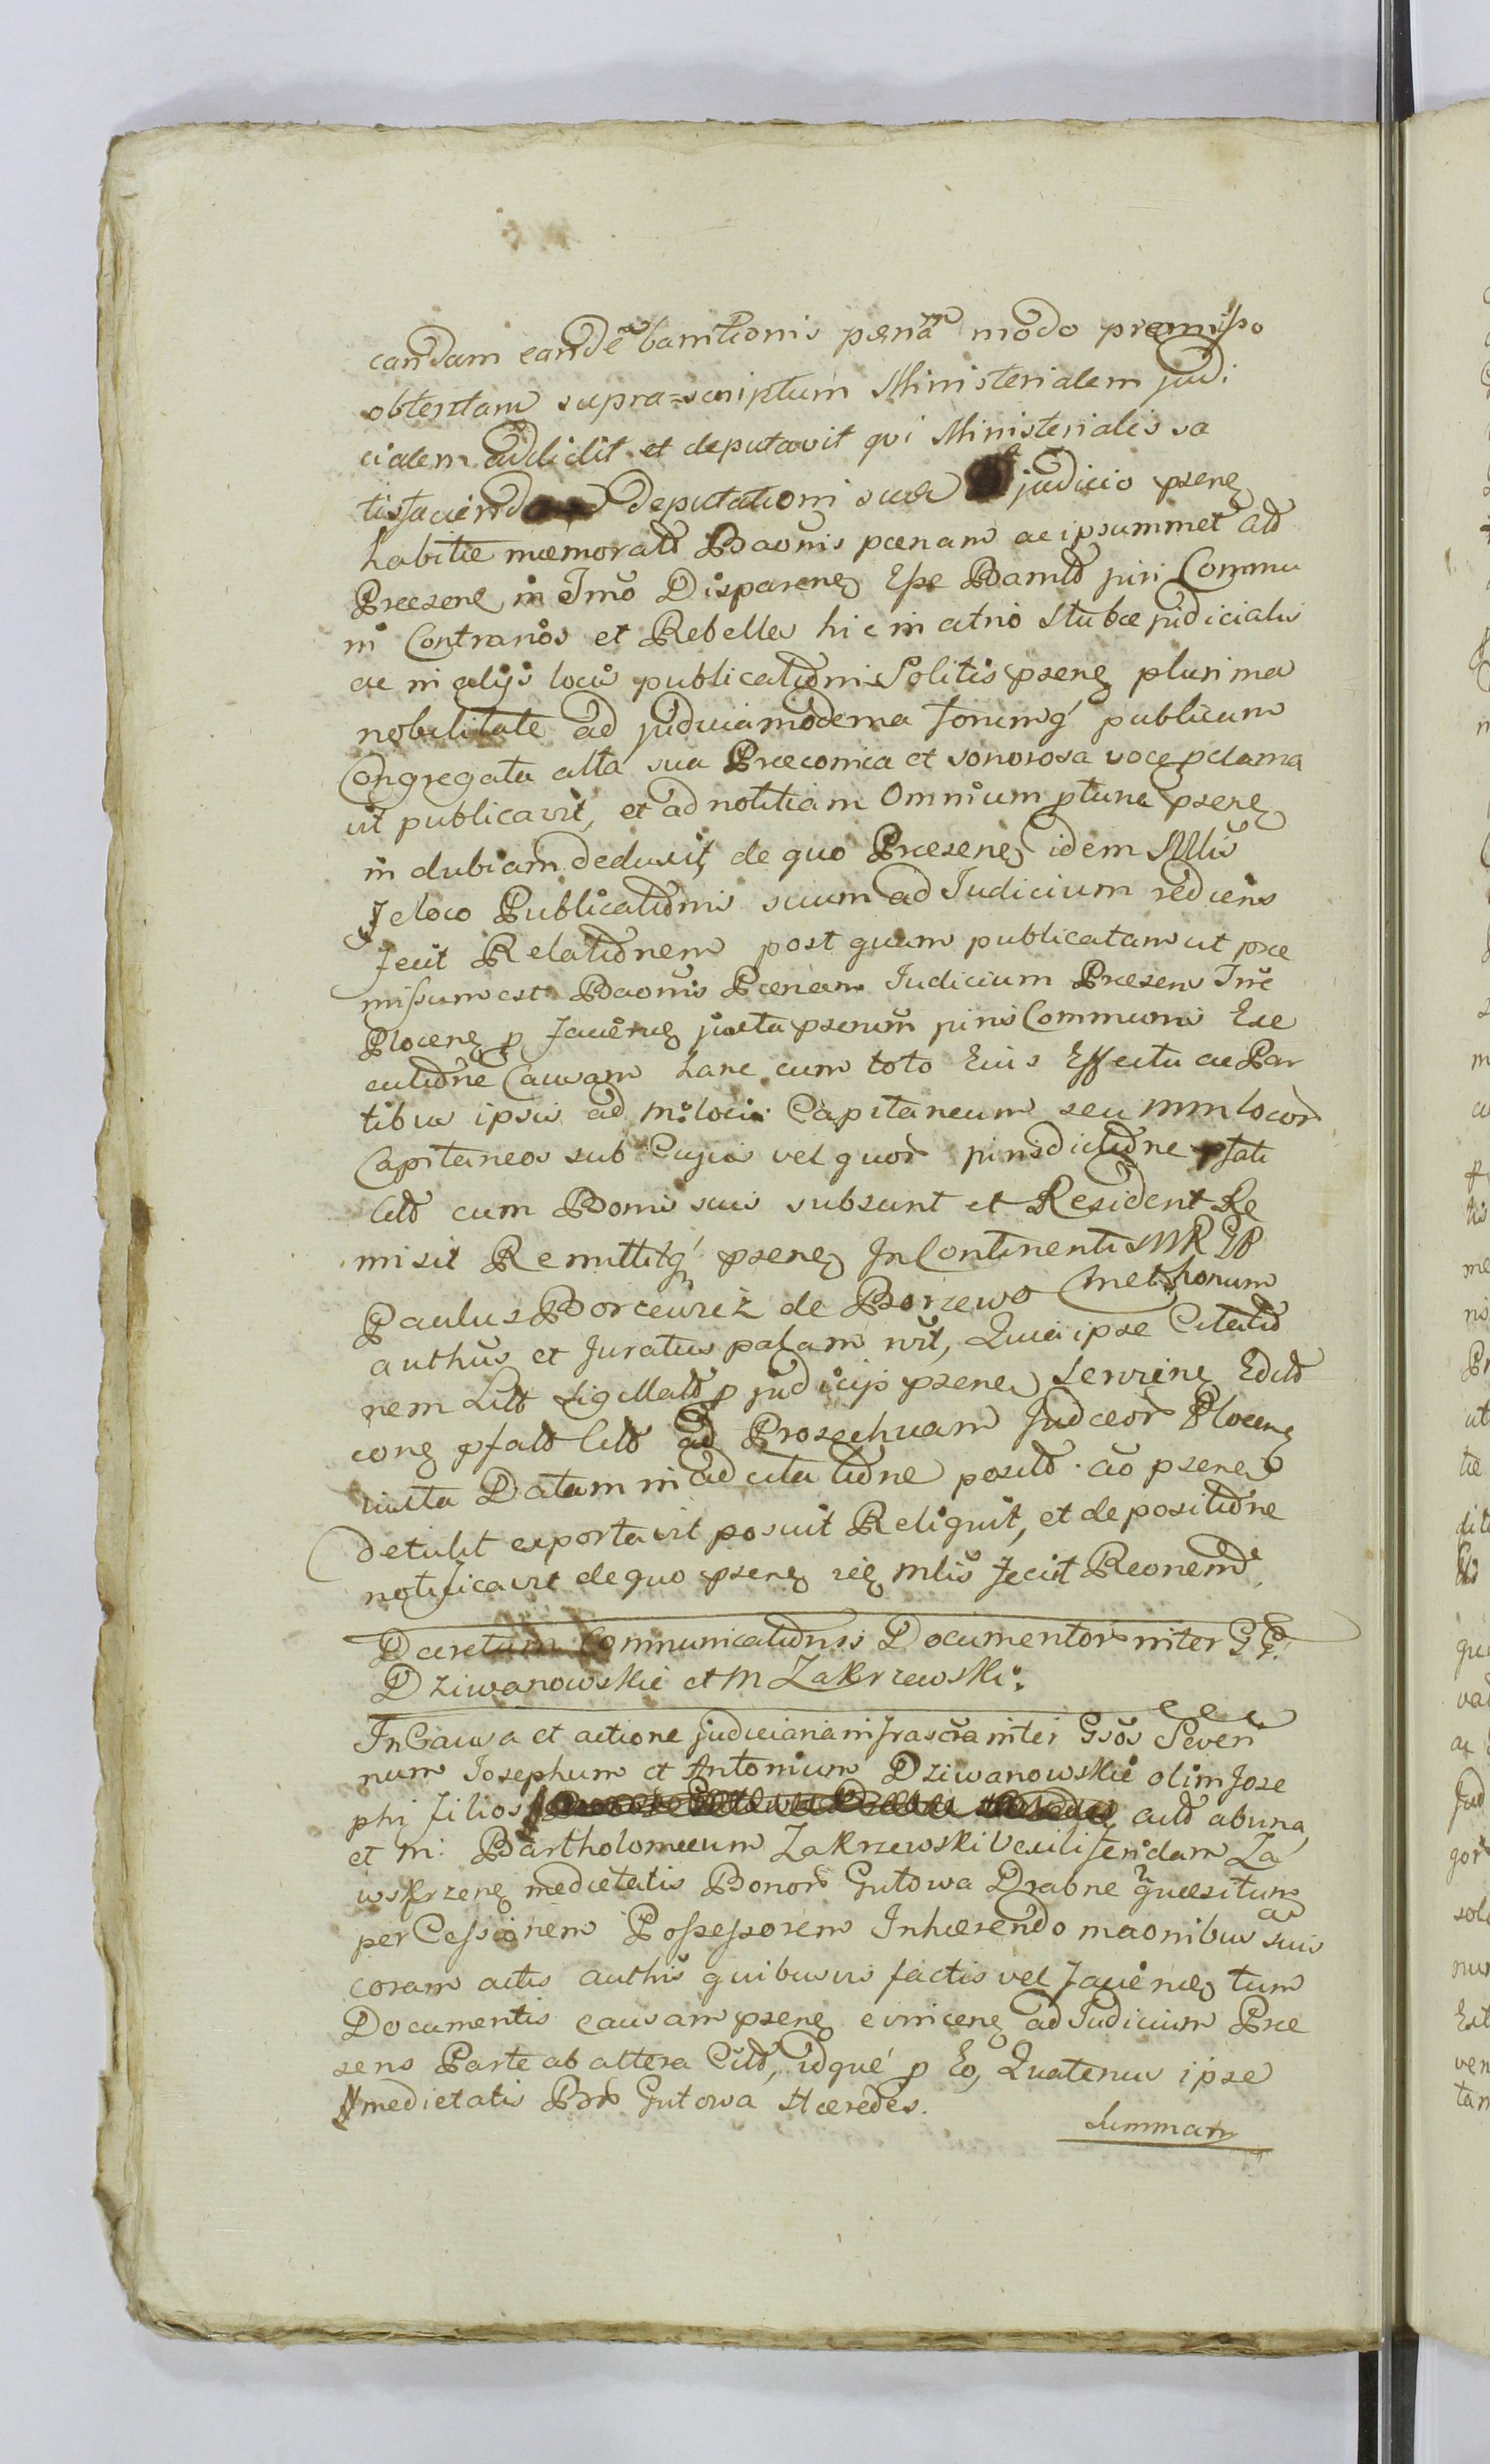 candam eandē banitionis pænam modo premisso
obtentam supra=scriptum Ministerialem judi
cialem addidit et deputavit qvi Ministerialis sa
tisfaciendo deputationi suæ a judicio psenę
habitæ memoratd Baōnis pœnam ac ipsummet Cltd
Præsenę in Tm̄o Disparenę Esse Banitd juri Commu
ni Contrarios et Rebelles hic in atrio stubæ judicialis
ac in alijs locis publicatiōni Solitis psenę plurima
nobilitate ad judicia moderna forumq́ publicum
Congregata alta sua Præconica et sonorosa voce pclama
vit publicavit, et ad notitiam Omnium ptunc psenę
in dubiam deduxit, de quo Præsenę idem Mlis̄
de loco Publicationis suum ad Iudicium rediens
fecit Relationem post quam publicatam ut præ
missum est Baōnis Pœnam Iudicium Præsens Trr̄e
Plocenę p faciēnę juxta psenūm juris Communis Exe
cutiōne Causam hanc cum toto Eius Effectu ac Par
tibus ipsis ad M: loci Capitaneum seu mm locor
Capitaneos sub Cujus vel quor jurisdictiōne pfati
Citd cum Bonis suis subsunt et Resident Re
misit Remittitq́ psenę In Continenti MR GB
Paulus Borcewicz de Borzewo Methonum
authūs et Juratus palam r̄vit, Quia ipse Citatiō
nem Litt Sigillatd p judicij psenę Serviene Editd
conę pfatd Citd ad Prosequam Judceor Plocenę
iuxta Datam in ad cita tiōne positd ao psenę
detulit exportavit posuit Reliquit, et de positiōne
notificavit de quo psenę rēę mlis̄ fecit Reonem
Decretum Communicationis Documentor inter GG
Dziwanowskie et M Zakrzewski.
In Causa et actione judiciaria infrascra inter Gsōs Severi
num Josephum et Antonium Dziwanowskie olim Jose
phi filios actd ab una
et M: Bartholomeum Zakrzewski Vexilliferidam Za
wskrzenę medietatis Bonor Gutowa Drabne quæsitum
per Cessionem Possessorem Inhærendo maonibus suis
coram actis authis̄ quibusvis factis vel faciēnę tum
Documentis causam psenę evincenę ad Judicium Præ
sens Parte ab altera Citd, idque p Eo, Quatenus ipse
medietatis Br Gutowa Hæredes.
Summam